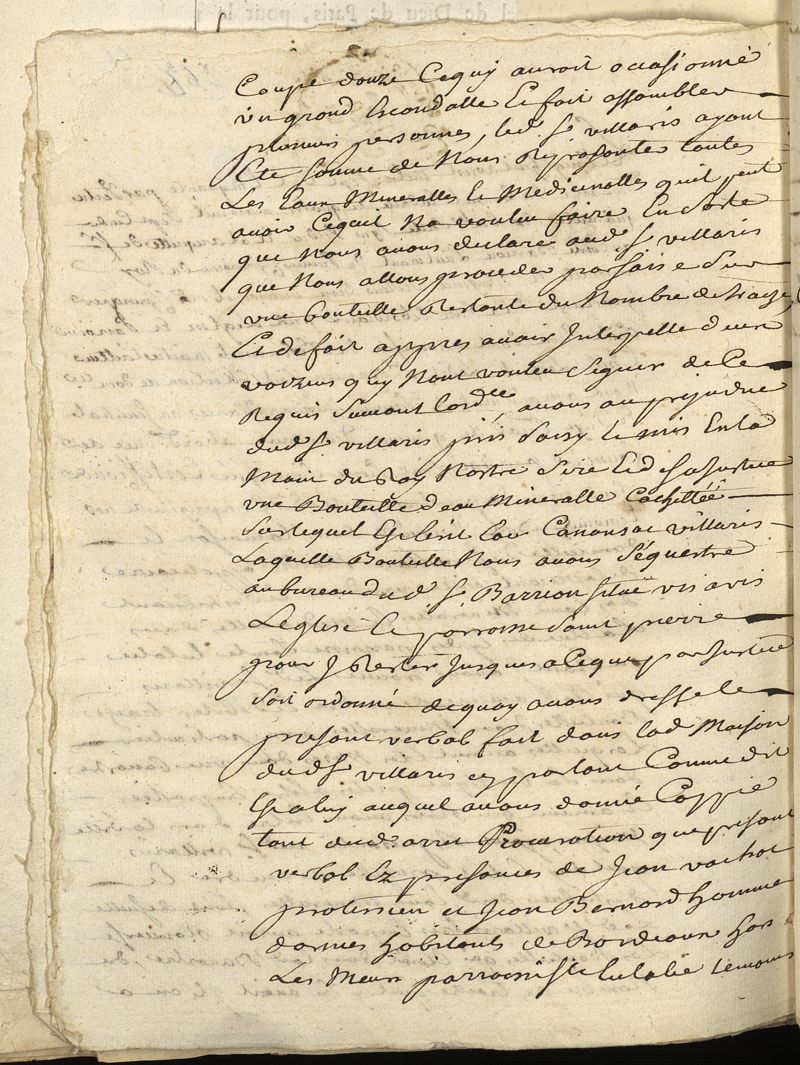 Coupé douze Cequy auroit occasionné
un grand Escandalle Et fait assembler
plusieurs personnes, led. Sr. villaris ayant
Eté sommé de Nous Représenter toutes
Les Eaux Mineralles Et Medicinalles quil peut
avoir Cequil Na voulu faire En sorte
que Nous avons declaré aud. Sr. villaris
que Nous allons proceder par saisie sur
une bouteille Restante du Nombre de traize,
Et de fait appres avoir Interpellé deux
voizins quy Nont voulu signer de Ce
Requis suivant Lordce, avons au prejudice
dud. Sr. villaris pris saisy Et mis En la
Main du Roy Nostre Sire Et de sa Justice
une Bouteille d'eau Mineralle Cachettéé
Sur lequel Est Ecrit Eau Canansac villaris
Laquelle Bouteille Nous avons Séquestré
au bureau dud. Sr. Barrion situé vis avis
Léglise Et parroisse Saint pierre
pour y Rester Jusques a Ceque par Justice
soit ordonné dequoy avons dressé le
présent verbal fait dans lad. Maison
dud. Sr. villaris en parlant Comme dit
Est a luy auquel avons donné Coppie
tant dud. arret Procuration que présent
verbal Ez présances de Jean vachot
praticien et Jean Bernard homme
darmes habitants de Bordeaux hors
Les Murs parroisse Ste Eulalie temoins